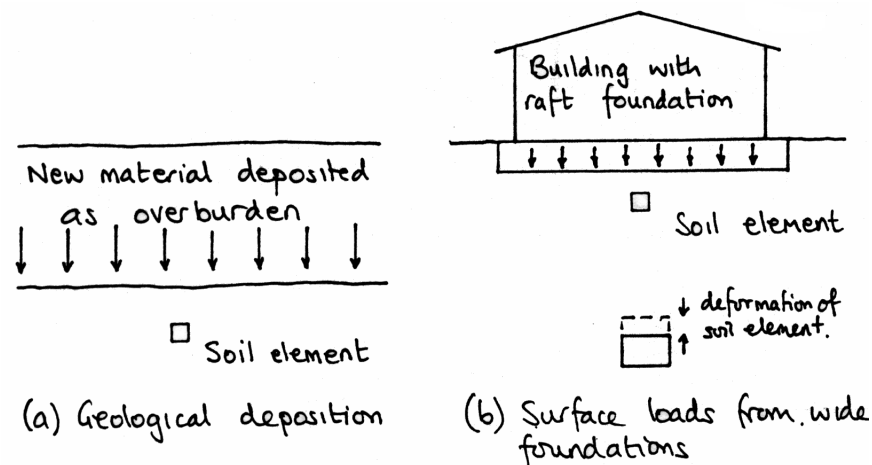 New material deposited
as overburden
Soil element
(a) Geological deposition
Building with
raft foundation
Soil element
deformation of
soil element.
(b) Surface loads from wide
foundations